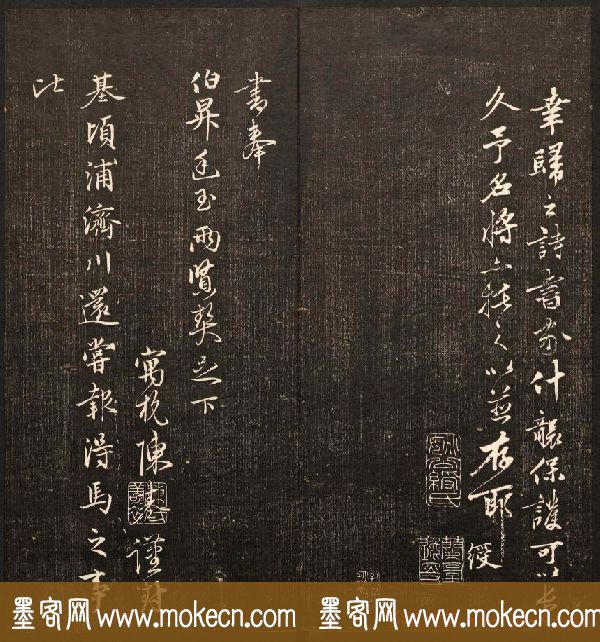 幸歸之詩書家什襲保護可以長
久予名將亦託之以並存耶
綬
書奉
伯昇廷玉兩賢契足下
寓杭陳
謹封
基頃浦濟川還嘗報得馬之事
比
墨客网 www.mokecn.com 墨客网 www.mokecn.com